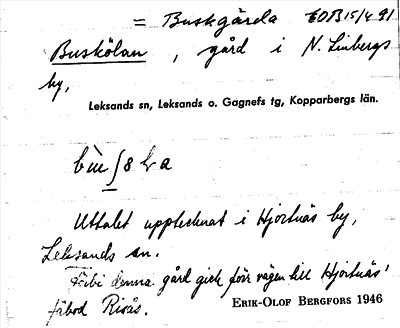 = Buskgärda EOB 15/4 91
Buskölan, gård i N. Linbergs
by,
Leksands sn, Leksands o. Gagnefs tg, Kopparbergs län.
Uttalet upptecknat i Hjortnäs by,
Leksands sn.
Förbi denna gård gick förr vägen till Hjortnäs'
fäbod Risås.
ERIK-OLOF BERGFORS 1946